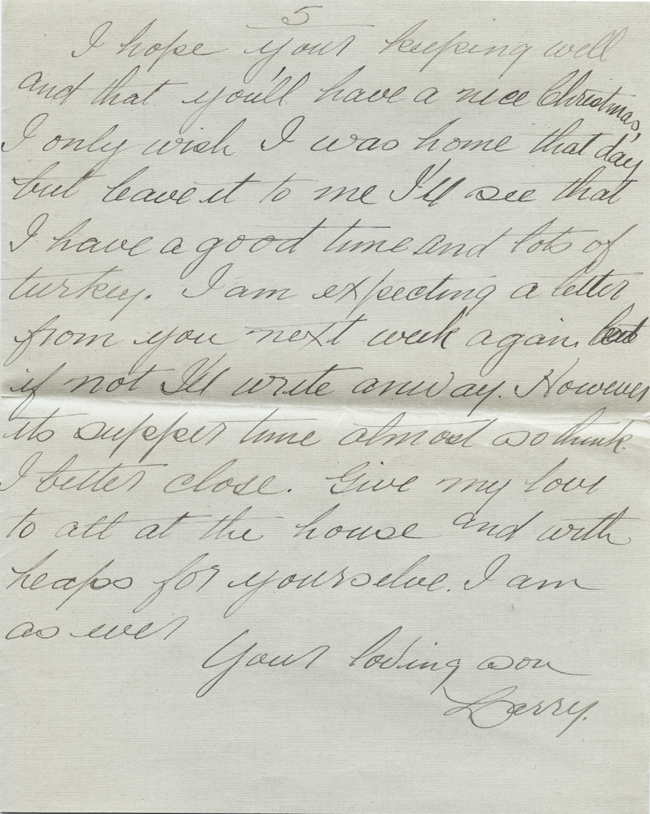 5
I hope your keeping well
and that you'll have a nice Christmas,
I only wish I was home that day
but leave it to me I'll see that
I have a good time and lots of
turkey. I am expecting a letter
from you next week again but
if not I'll write anyway. However
its supper time almost so think
I better close. Give my love
to all at the house and with
heaps for yourselve. I am
as ever
Your loving son
Larry.